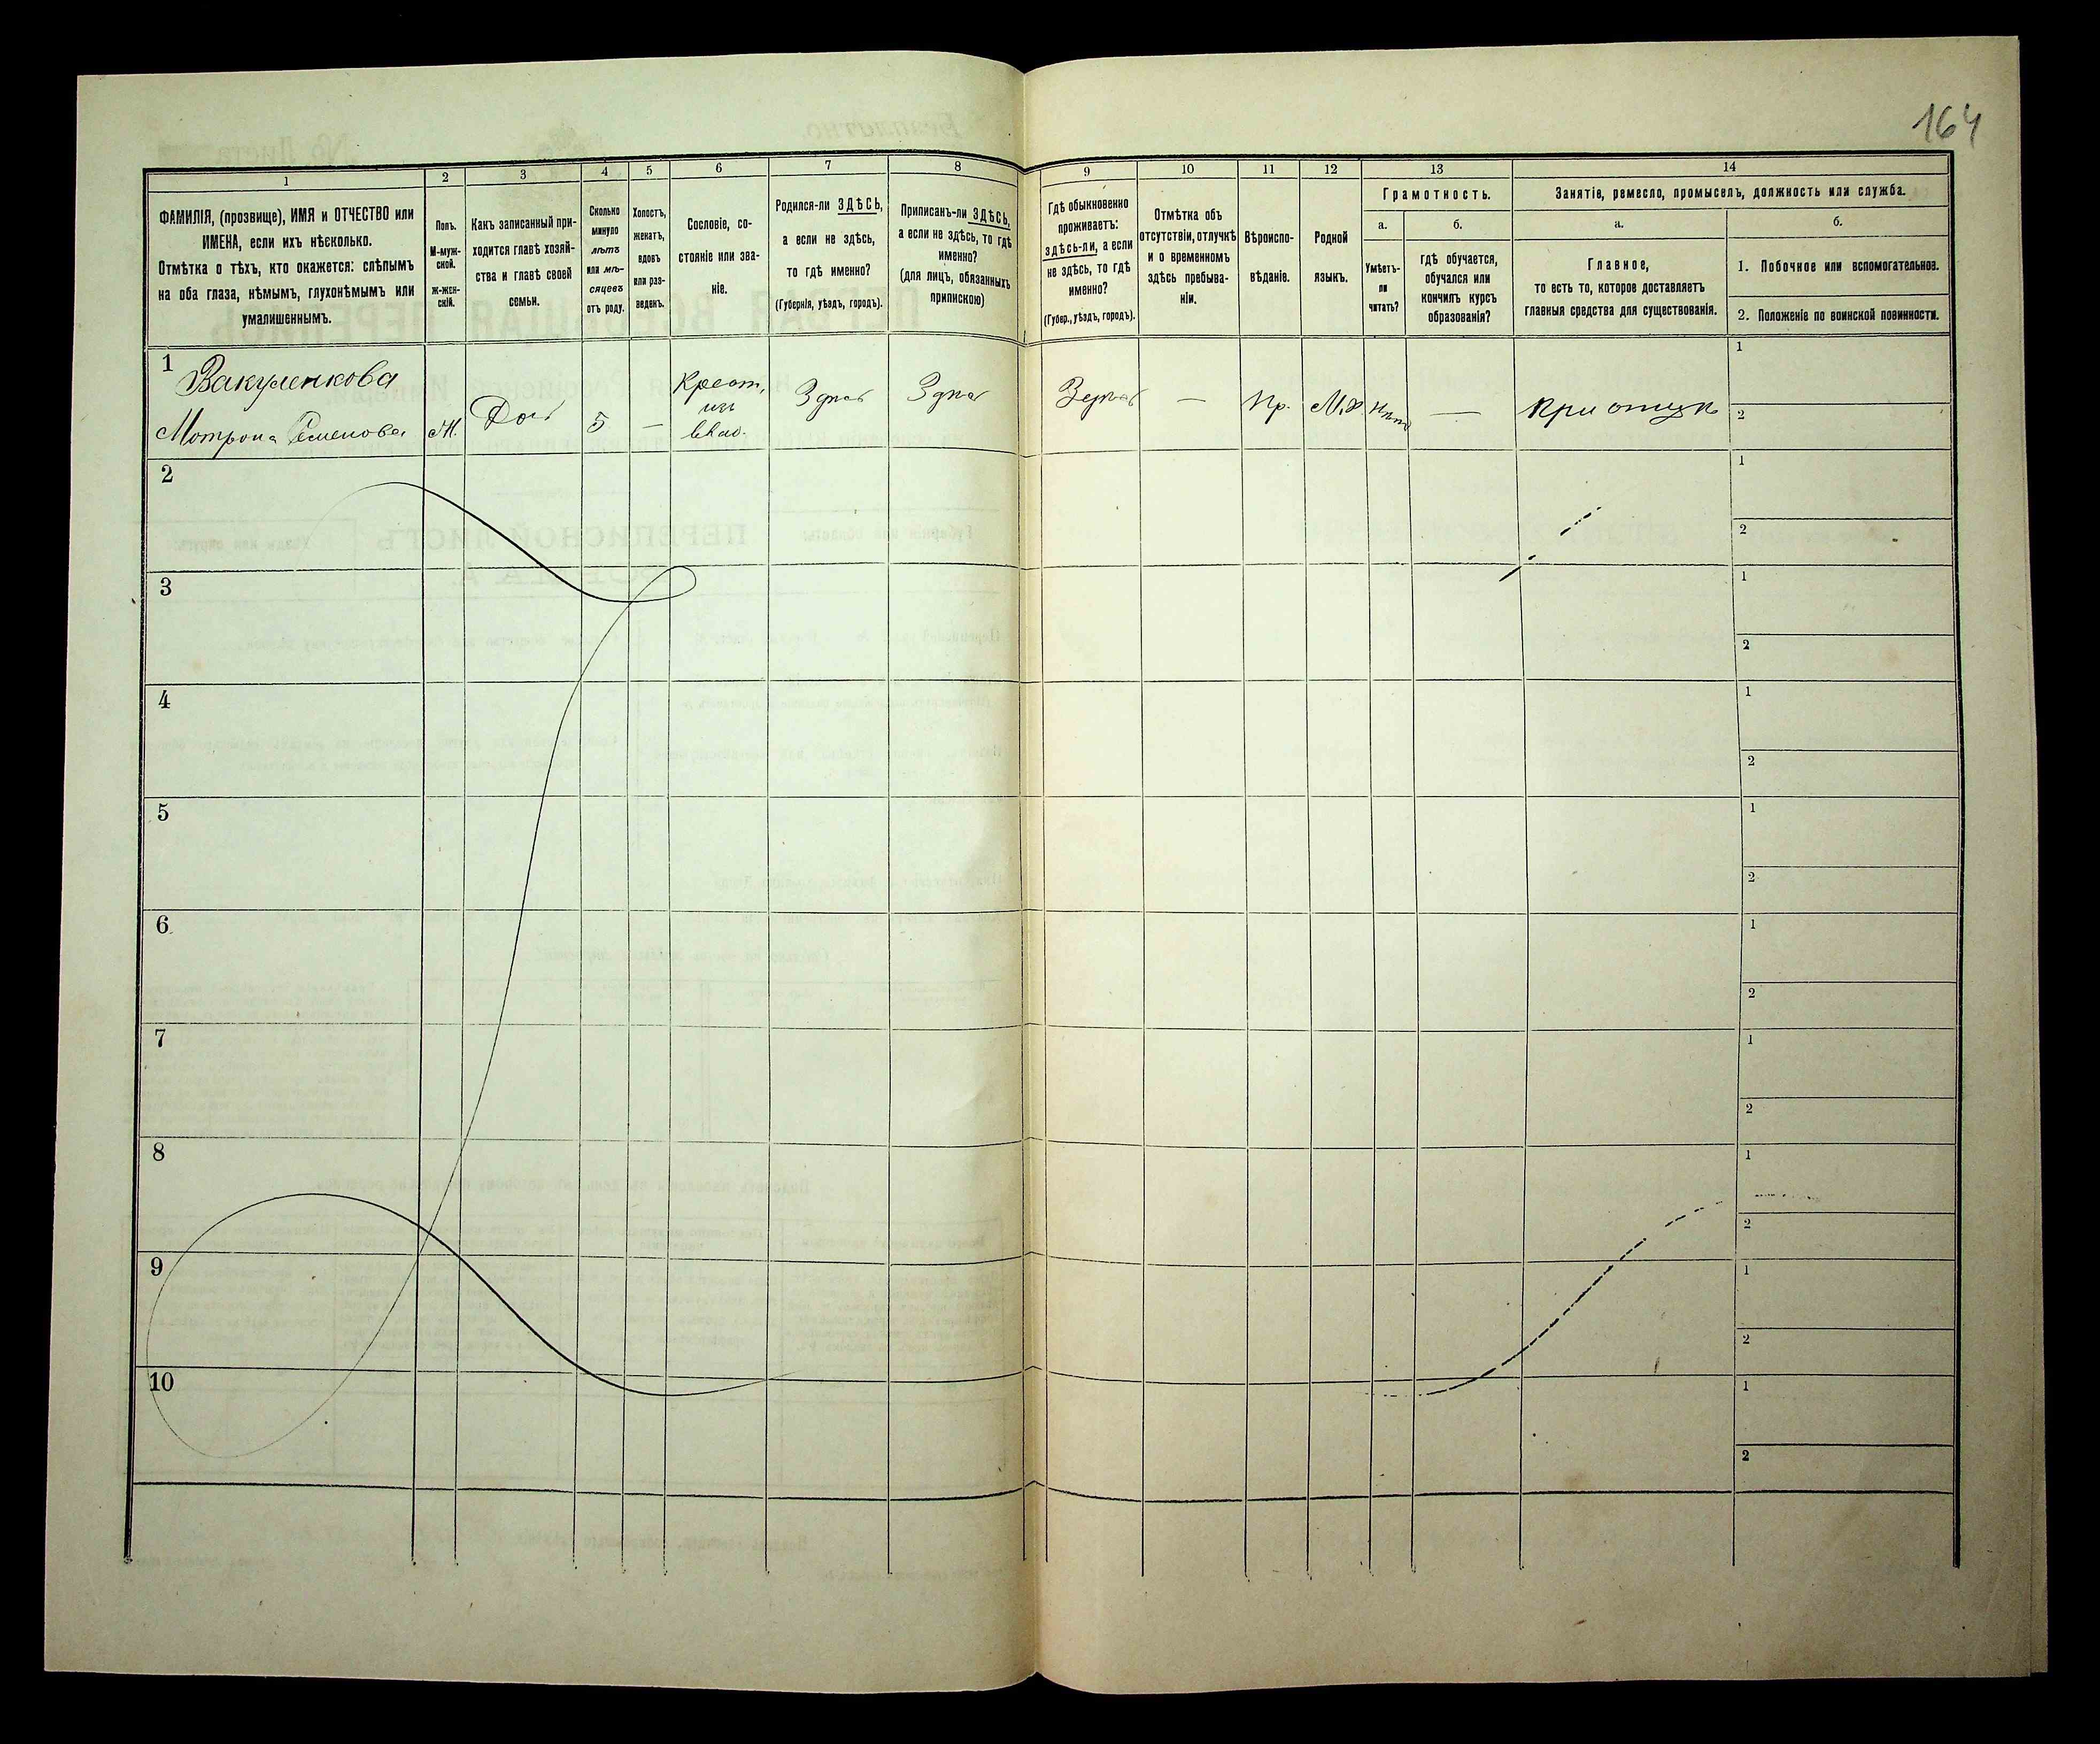 164
1
2
3
4
5
6
7
8
9
10
11
12
13
14
ФАМИЛІЯ, (прозвище), ИМЯ и ОТЧЕСТВО или
ИМЕНА, если ихъ нѣсколько.
Отмѣтка о тѣхъ, кто окажется: слѣпымъ
на оба глаза, нѣмымъ, глухонѣмымъ или
умалишеннымъ.
Полъ.
М-муж-
ской.
Ж-жен-
скій.
Какъ записанный при-
ходится главѣ хозяй-
ства и главѣ своей
семьи.
Сколько
минуло
лѣтъ
или мѣ-
сяцевъ
отъ роду.
Холостъ,
женатъ,
вдовъ
или раз-
веденъ.
Сословіе, со-
стояніе или зва-
ніе.
Родился-ли ЗДѢСЬ,
а если не здѣсь,
то гдѣ именно?
(Губернія, уѣздъ, городъ).
Приписанъ-ли ЗДѢСЬ,
а если не здѣсь, то гдѣ
именно?
(для лицъ, обязанныхъ
припискою)
Гдѣ обыкновенно
проживаетъ:
здѣсь-ли, а если
не здѣсь, то гдѣ
именно?
(Губер., уѣздъ, городъ).
Отмѣтка объ
отсутствіи, отлучкѣ
и о временномъ
здѣсь пребыва-
ніи.
Вѣроиспо-
вѣданіе.
Родной
языкъ.
Грамотность.
а.
Умѣетъ-
ли
читать?
б.
гдѣ обучается,
обучался или
кончилъ курсъ
образованія?
Занятіе, ремесло, промыселъ, должность или служба.
а.
Главное,
то есть то, которое доставляетъ
главныя средства для существованія.
б.
1. Побочное или вспомогательное.
2. Положеніе по воинской повинности.
1
Вакуленкова
Мотрона Семенова
Ж.
Дочь
5
—
Крест.
изъ
влад.
Здѣсь
Здѣсь
Здѣсь
—
Пр.
М.р.
Нѣтъ
—
При отцѣ
1
2
2
1
2
3
1
2
4
1
2
5
1
2
6
1
2
7
1
2
8
1
2
9
1
2
10
1
2